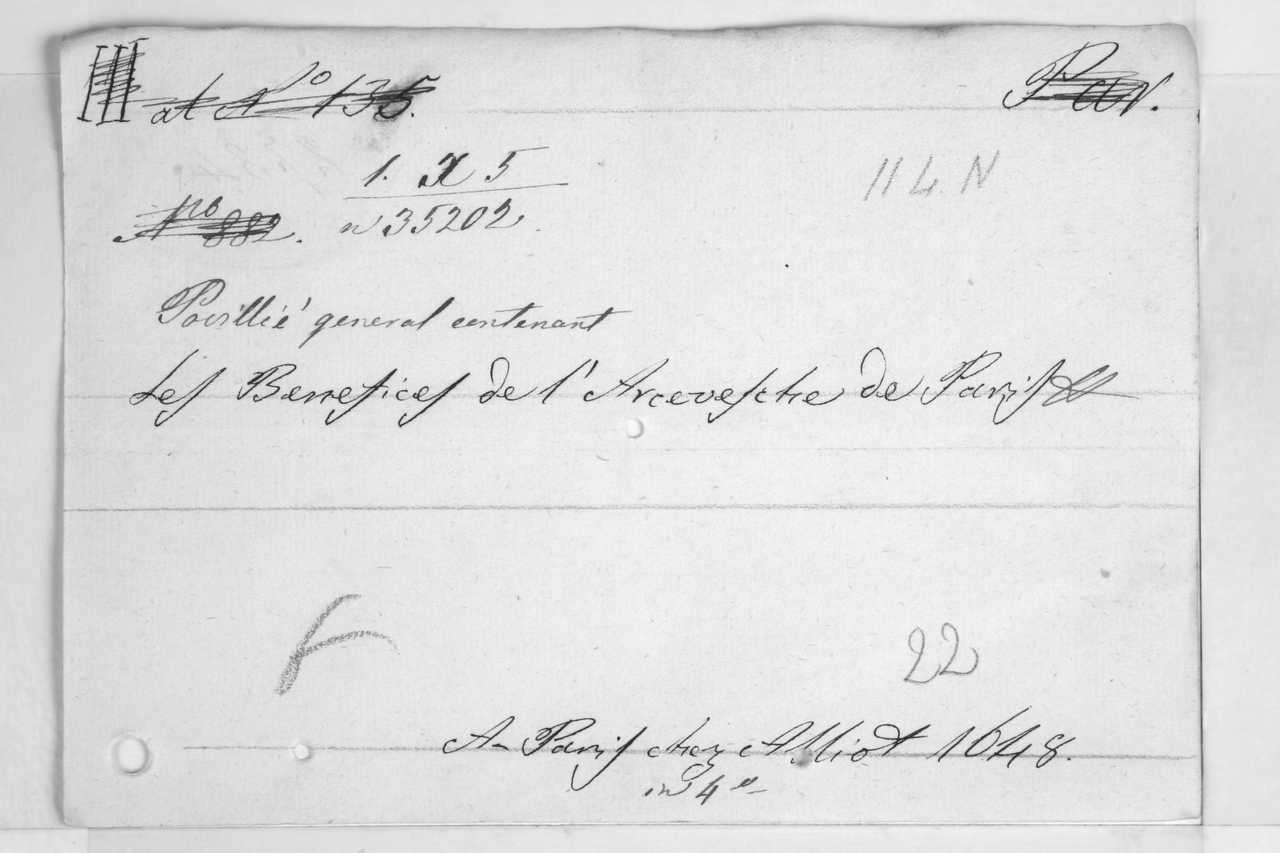 III at N° 135. Par.
1. X 5
114. N
N° 882. n 35202.
Povillié general contenant
Les Benefices de l'Arcevesche de Paris
22
A Paris chez Alliot 1648.
in 4°